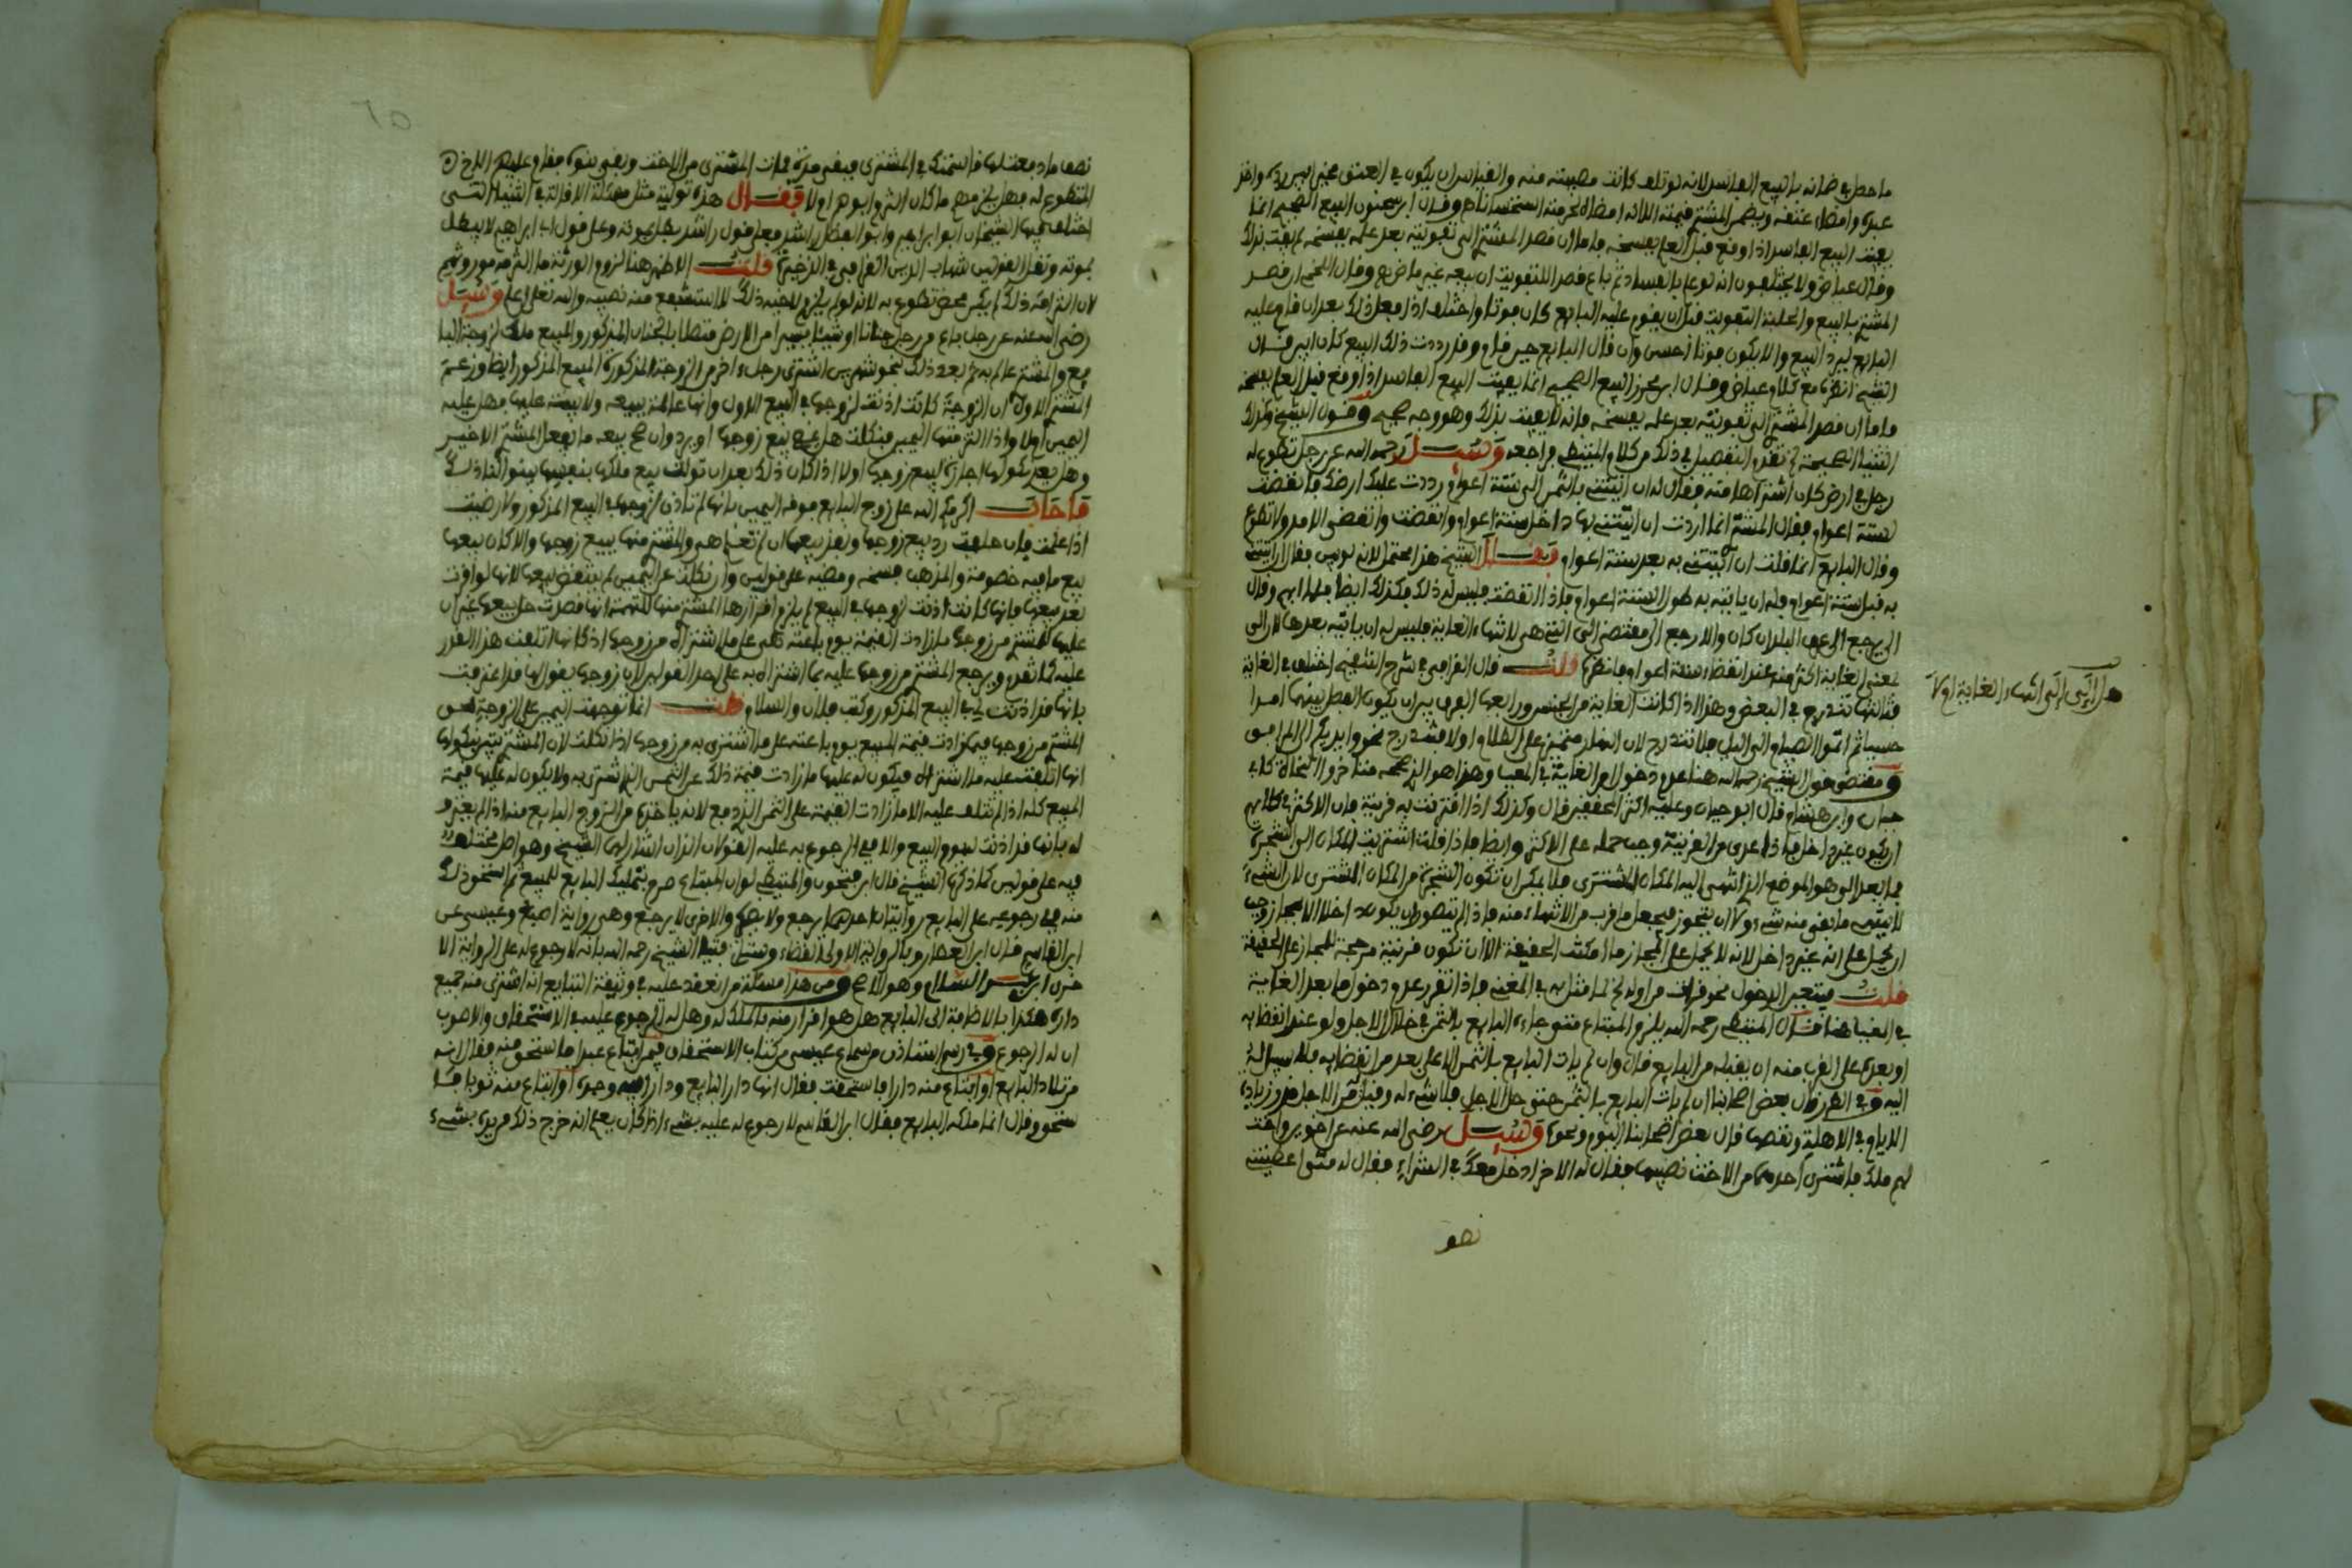 ما حصل في ضمانه بالبيع الفاسد لانه لو تلف كانت مصيبته منه والقياس ان يكون في العتق
عبده وامضاء عتقه ويضمن المشتري قيمته الا انه امضاه لحرمته استحسانا وقال ابن سحنون البيع الصحيح انما
يفيت البيع الفاسد اذا وقع قبل العلم بفسخه واما ان قصد المشتري الى تفويته بعد علمه بفسخه لم يفت بذلك
وقال عياض ولا يختلفون انه لو علم بالفساد ثم باع قصد اللتفويت ان بيعه غير ماض وقال اللخمي ان قصد
المشتري بالبيع والحلية التفويت قبل ان يقوم عليه البايع كان فوتا واختلف اذا فعل ذلك بعد ان قام عليه
البايع ليرد البيع والا يكون فوتا احسن وان قال البايع حين قام وقد رددت ذلك البيع كان ابين قال
الشيخ انظره مع كلام عياض وقال ابن محرز البيع الصحيح انما يفيت البيع الفاسد اذا وقع قبل العلم بفسخه
فاما ان قصد المشتري الى تفويته بعد علمه بفسخه فانه لا يفيت بذلك وهو وجه صحيح وقول الشيخ وكذلك
الثنيا الصحيحة تقدم التفصيل في ذلك من كلام المتيطي فراجعه وسئل رحمه الله عن رجل تطوع له
رجل في ارض كان اشتراها منه فقال له ان اتيتني بالثمن الى ستة اعوام رددت عليك ارضك فانقضت
الستة اعوام فقال المشتري انما اردت ان اتيتني بها داخل ستة اعوام وانقضت وانقضى الامد ولا تطوع
وقال البايع انما قلت ان آتيتني به بعد ستة اعوام فقال الشيخ هذا محتمل لانه لو بين فقال ان اتيتني
به قبل ستة اعوام فله ان ياتيه به طول الستة اعوام فاذا انقضت فليس له ذلك فكذلك ايضا فلما ابهم وقال
الى يرجع الى عرف البلد ان كان والا رجع الى مقتضى الى التي هي لانتهاء الغاية فليس له ان ياتيه بعدها لان الى
لمعنى الغاية اكثر منه عند انقضاء ستة اعوام فانظره قلت قال القرافي في شرح التنقيح اختلف في الغاية
هل الى الى انتهاء الغاية اولا
ثالثها تندرج في البعض وهذا اذا كانت الغاية من الجنس ورابعها الفرق بين ان يكون الفصل بينهما امرا
حسيا ثم اتموا الصيام الى الليل فلا تندرج لان النهار متميز على الظلام اولا فتندرج نحو وايديكم الى المرافق
ومقتضى قول الشيخ رحمه الله هنا عدم دخول الغاية في المغيا وهذا هو الذي صححه متاخروا النحاة كابي
حيان وابن هشام قال ابو حيان وعليه اكثر المحققين قال وكذلك اذا اقترنت به قرينة فان الاكثر في كلامهم
ان يكون غير داخل فاذا عري من القرينة وجب حمله على الاكثر وايضا فاذا قلت اشتريت المكان الى الشجرة
فما بعد الى هو الموضع الذي انتهى اليه المكان المشترى فلا يمكن ان تكون الشجرة من المكان المشترى لان الشيء
لا ينتهي ما بقي منه شيء الا ان يتجوز فيجعل ما قرب من الانتهاء منه فاذا لم يتصور ان يكون داخلا الا بمجاز وجب
ان يحمل على انه غير داخل لانه لا يحمل على المجاز ما امكنت الحقيقة الا ان تكون قرينة مرجحة للمجاز على الحقيقة
قلت فيتعين الدخول نحو قرات من اوله لما مثل به في المغني فاذا تقرر عدم دخول ما بعد الغاية
في المغيا هنا قال المتيطي رحمه الله يلزم المبتاع متى جاءه البايع بالثمن في خلال الاجل ولو عند انقضائه
او بعده على القرب منه ان يقبله من البايع قال وان لم يات البايع بالثمن الا على بعد من انقضائه فلا سبيل له
اليه وفي الطرر قال بعض اصحابنا ان لم يات البايع بالثمن حتى حل الاجل فلا شيء له وقيل
الايام في الاهلة ونقصها قال بعض اصحابنا اليوم ونحوه وسئل رضي الله عنه عن اخوين واخت
لهم ملك فاشترى احدهما من الاخت نصيبها فقال له الاخر ادخل معك في الشراء فقال له متى اعطيتني
نصف
نصف ما دفعت لها فالشحنك في المشتري فبقي مدة فمات المشتري من الاخت وبقي بنوه فقام عليهم الاخ
المتطوع له فهل يلزمهم ما كان التزم ابوهم ام لا فقال هذه تولية مثل مسئلة الاقالة في الثنيا التي
اختلف فيها الشيخان ابو ابراهيم وابو الفضل راشد فعلى قول راشد يبطل بموته وعلى قول ابي ابراهيم لا يبطل
بموته ونقل القولين شهاب الدين القرافي في الذخيرة قلت الاظهر هنا لزوم الورثة ما التزمه موروثهم
لان التزامه ذلك لم يكن محض تطوع به لانه لو لم يلتزم لاخيه ذلك لا استشفع منه نصيبه والله تعلى اعلم وسئل
رضي الله عنه عن رجل باع من رجل جنانا او شيئا يسيرا من الارض متصلا بالجنان المذكور والمبيع ملك لزوجة البا
يع والمشتري عالم به ثم بعد ذلك نحو شهرين اشترى رجل اخر من الزوجة المذكورة المبيع المذكور ايضا وزعم
المشتري الاول ان الزوجة كانت اذنت لزوجها في البيع الاول وانها عالمة ببيعه ولا بينة عليها فهل عليها
اليمين ام لا واذا الزمتها اليمين فنكلت هل يمضي بيع زوجها او يرد وان صح بيعه ما يفعل المشتري الاخير
وهل يعد نكولها اجازة لبيع زوجها ام لا اذا كان ذلك بعد ان تولت بيع ملكها بنفسها بينوا لنا ذلك
فاجاب اكرمكم الله على زوج البايع موفه اليمين بانها لم تاذن لزوجها في البيع المذكور ولا رضيت
اذا علمت فان حلفت رد بيع زوجها ونفذ بيعها ان لم تعلم هي والمشتري منها ببيع زوجها والا كان بيعها
بيع ما فيه خصومة والمذهب فسخه ومضيه على قولين وان نكلت عن اليمين لم ينتقض بيعها لانها لو اقرت
بعد بيعها بانها كانت اذنت لزوجها في البيع لم يلزم اقرارها المشتري منها للتهمة انها قصدت حل بيعها غير ان
عليها للمشتري من زوجها ما زادت القيمة يوم باعته على ما اشتراه من زوجها اذ كانها اتلفت هذا القدر
عليه كما تقدم ويرجع المشتري من زوجها عليه بما اشتراه به على احد القولين لان زوجها يقول انها قد اعترفت
بانها قد اذنت لي في البيع المذكور وكتب فلان والسلام قلت انما توجهت اليمين على الزوجة لحق
المشتري من زوجها فيما زادت قيمة المبيع يوم باعته على ما اشترى به من زوجها اذا نكلت لان المشتري يتهم بنكولها
انها اتلفت عليه ما اشتراه فيكون له عليها ما زادت قيمة ذلك عن الثمن الذي اشترى به ولا يكون له عليها قيمة
المبيع كله اذ لم تتلف عليه الا ما زادت القيمة على الثمن الذي دفع لانه ياخذه من الزوج البايع منه اذ لم يعترف
له بانها قد اذنت له في البيع والا ففي الرجوع به عليه القولان اللذان اشار لهما الشيخ وهو اصل مختلف
فيه على قولين كما ذكره الشيخ قال ابن فتحون والمتيطي لو ان المبتاع صرح بتمليك البايع للمبيع ثم استحق ذلك
منه ففي رجوعه على البايع روايتان احدهما يرجع ولا يضره والاخرى لا يرجع وهي رواية اصبغ وعيسى عن
ابن القاسم قال ابن العطار وبالرواية الاولى القضاء وستاتي فتيا الشيخ رحمه الله بانه لا رجوع له على الرواية الا
خرى ابن عبد السلام وهو الاصح ومن هذا مسئلة من انعقد عليه في وثيقة التبايع انه اشترى منه جميع
داره هكذا بالاضافة الى البايع هل هو اقرار منه بالملك له وهل له الرجوع عليه في الاستحقاق والاصوب
ان له الرجوع وفي رسم استاذن من سماع عيسى من كتاب الاستحقاق فيمن ابتاع عبدا فاستحق منه فقال انه
من تلاد البايع او ابتاع منه دارا فاستحقت فقال انها دار البايع ودار ابيه وجده او ابتاع منه ثوبا فا
ستحق وقال انما ملكه البايع فقال ابن القاسم لا رجوع له عليه بشيء اذا كان يعلم انه خرج ذلك من يده بشيء